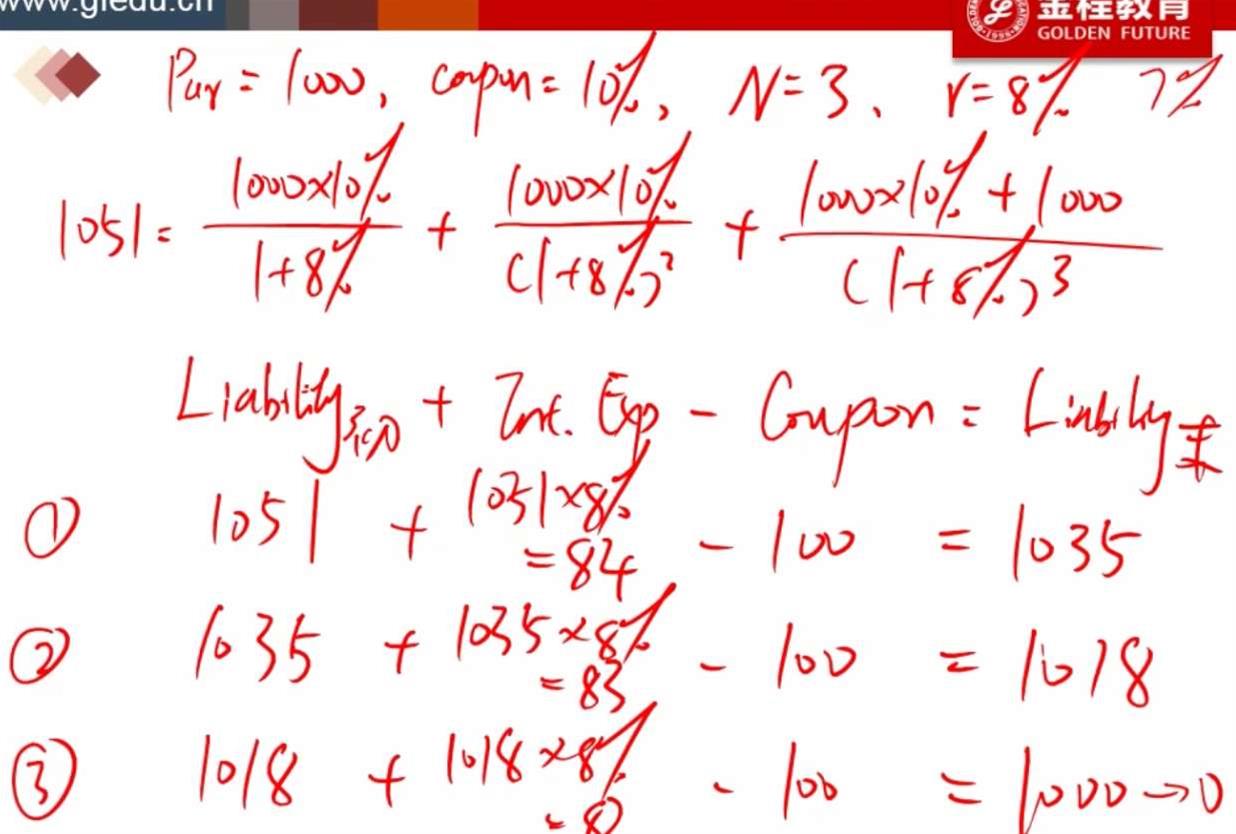 www.gfedu.cn
金程教育
GOLDEN FUTURE
Par = 1000, coupon = 10%, N = 3, r = 8% 7%
1051 = 1000×10% / 1+8% + 1000×10% / (1+8%)² + 1000×10% + 1000 / (1+8%)³
Liability初 + Int. Exp - Coupon = Liability末
① 1051 + 1051×8% = 84 - 100 = 1035
② 1035 + 1035×8% = 83 - 100 = 1018
③ 1018 + 1018×8% - 100 = 1000 → 0